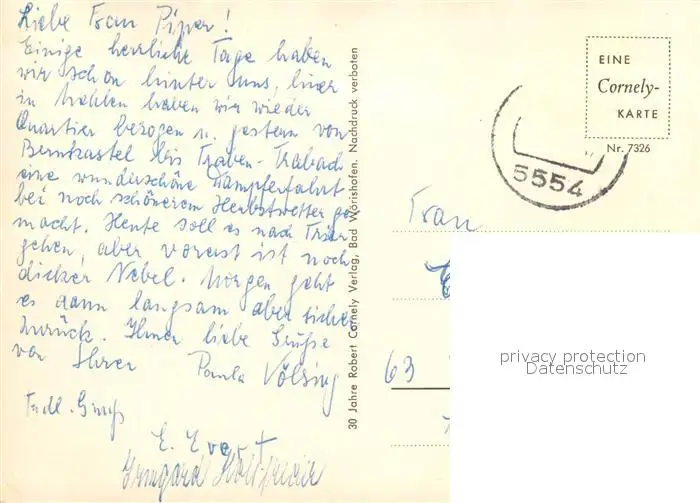 Liebe Frau Piper!
Einige herrliche Tage haben
wir schon hinter uns, hier
in haben wir wieder
Quartier bezogen u. gestern von
Bernkastel bis Traben-Trabach
eine wunderschöne Dampferfahrt
bei noch schönerem Herbstwetter ge
macht. Heute soll es nach Trier
gehen, aber vorerst ist noch
dicker Nebel. Morgen geht
es dann langsam aber sicher
zurück. Ihnen liebe Grüße
von Ihrer Paula Völsing
Frdl. Gruß
E. Evert
Irmgard
30 Jahre Robert Cornely Verlag, Bad Wörishofen. Nachdruck verboten
EINE
Cornely-
KARTE
Nr. 7326
5554
Frau
63
privacy protection
Datenschutz